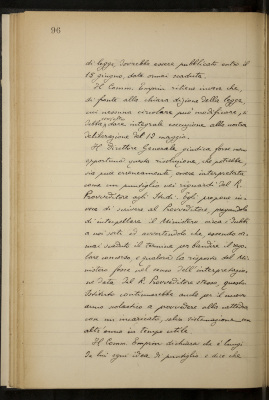 96
di legge, dovrebbe essere pubblicato entro il
15 giugno, data ormai scaduta.
Il Comm. Emprin ritiene invece che,
di fronte alla chiara dizione della legge,
una nessuna circolare può modificare, si
debba dare integrale esecuzione alla nostra
deliberazione del 13 maggio.
Il Direttore Generale giudica forse non
opportuna questa risoluzione, che potrebbe,
sia pure erroneamente, essere interpretata
come un puntiglio nei riguardi del R.
Provveditore agli Studi. Egli propone in-
vece di scrivere al Provveditore, pregandolo
di interpellare il Ministero circa i dubbi
a noi sorti ed avvertendolo che, essendo or-
mai scaduto il termine per bandire il rego-
lare concorso, e qualora la risposta del Mi-
nistero fosse nel senso dell'interpretazio-
ne data dal R. Provveditore stesso, questo
Istituto continuerebbe anche per il nuovo
anno scolastico a provvedere alla cattedra
con un incaricato, salvo sistemazione un
altro anno in tempo utile.
Il Comm. Emprin dichiara che è lungi
da lui ogni idea di puntiglio e dice che